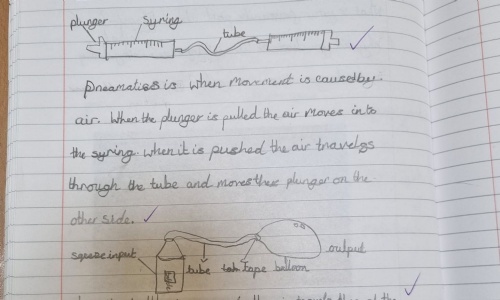 plunger
syring
tube
pneamatics is when movement is caused by
air. When the plunger is pulled the air moves into
the syring when it is pushed the air travels
through the tube and moves the plunger on the
other side.
squeeze input
tube
tape
balloon
output